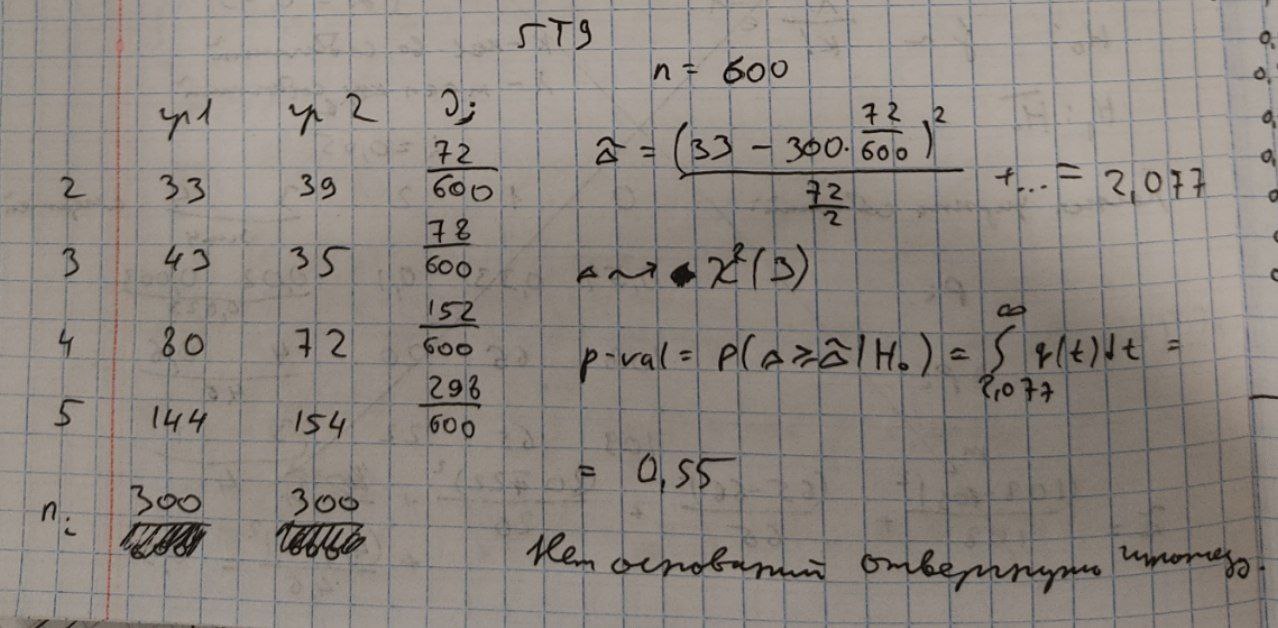 5T9
n = 600
гр1 гр2 Ĵj
2 33 39 72/600
3 43 35 78/600
4 80 72 152/600
5 144 154 298/600
nᵢ 300 300
Δ̃ = (33 - 300·72/600)² / (72/2) + ... = 2,077
Δ ⇝ χ²(3)
p-val = P(Δ ≥ Δ̃ | H₀) = ∫_{2,077}^{∞} q(t)dt =
= 0,55
Нет оснований отвергнуть гипотезу.